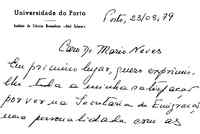 Universidade do Porto
Instituto de Ciências Biomédicas «Abel Salazar»
Porto, 23/08/79
Caro Dr Mario Neves
Em primeiro lugar, quero exprimir-
lhe toda a minha satisfação
por ver na Secretaria da Emigração
uma personalidade com as